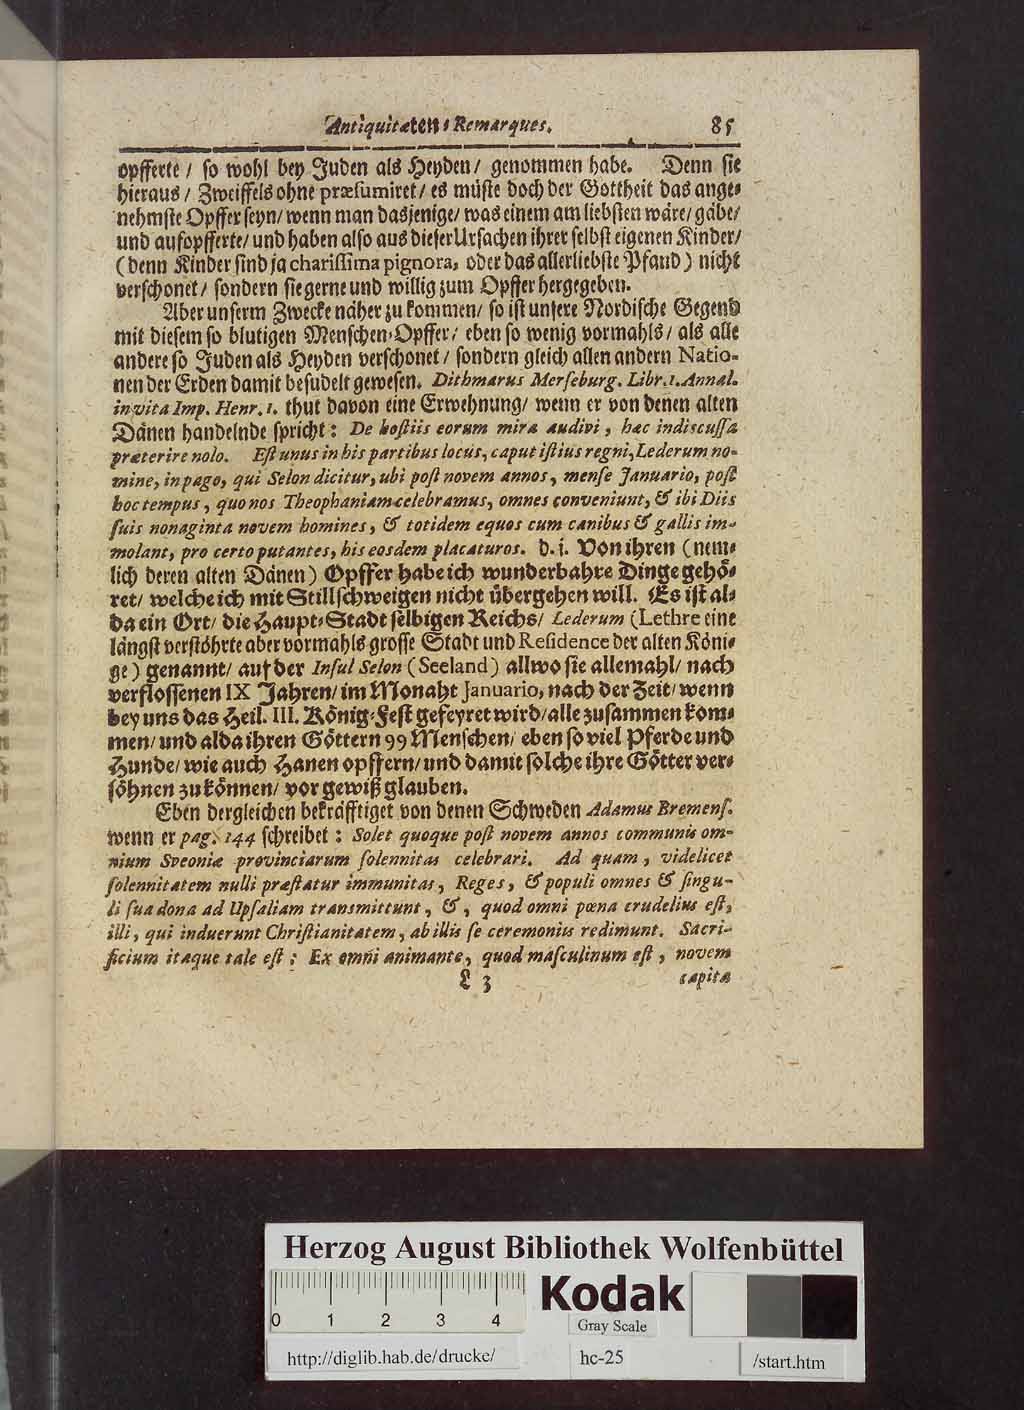 Antiquitæten-Remarques. 85
opfferte / so wohl bey Juden als Heyden / genommen habe. Denn sie
hieraus / Zweiffels ohne præsumiret / es müste doch der Gottheit das ange-
nehmste Opffer seyn / wenn man dasjenige / was einem am liebsten wäre / gäbe /
und aufopfferte / und haben also aus dieser Ursachen ihrer selbst eigenen Kinder /
(denn Kinder sind ja charissima pignora, oder das allerliebste Pfand) nicht
verschonet / sondern sie gerne und willig zum Opffer hergegeben.
Aber unserm Zwecke näher zu kommen / so ist unsere Nordische Gegend
mit diesem so blutigen Menschen-Opffer / eben so wenig vormahls / als alle
andere so Juden als Heyden verschonet / sondern gleich allen andern Natio-
nen der Erden damit besudelt gewesen. Dithmarus Merseburg. Libr. 1. Annal.
in vita Imp. Henr. 1. thut davon eine Erwehnung / wenn er von denen alten
Dänen handelnde spricht: De hostiis eorum mira audivi, hæc indiscussa
præterire nolo. Est unus in his partibus locus, caput istius regni, Lederum no-
mine, in pago, qui Selon dicitur, ubi post novem annos, mense Januario, post
hoc tempus, quo nos Theophaniam celebramus, omnes conveniunt, & ibi Diis
suis nonaginta novem homines, & totidem equos cum canibus & gallis im-
molant, pro certo putantes, his eosdem placaturos. d. i. Von ihren (nem-
lich deren alten Dänen) Opffer habe ich wunderbahre Dinge gehö-
ret / welche ich mit Stillschweigen nicht übergehen will. Es ist al-
da ein Ort / die Haupt-Stadt selbigen Reichs / Lederum (Lethre eine
längst verstöhrte aber vormahls grosse Stadt und Residence der alten Köni-
ge) genannt / auf der Insul Selon (Seeland) allwo sie allemahl / nach
verflossenen IX Jahren / im Monaht Januario, nach der Zeit / wenn
bey uns das Heil. III. König-Fest gefeyret wird / alle zusammen kom-
men / und alda ihren Göttern 99 Menschen / eben so viel Pferde und
Hunde / wie auch Hanen opffern / und damit solche ihre Götter ver-
söhnen zu können / vor gewiß glauben.
Eben dergleichen bekräfftiget von denen Schweden Adamus Bremens.
wenn er pag. 144 schreibet: Solet quoque post novem annos communis om-
nium Sveoniæ provinciarum solennitas celebrari. Ad quam, videlicet
solennitatem nulli præstatur immunitas, Reges, & populi omnes & singu-
li sua dona ad Upsaliam transmittunt, &, quod omni pœna crudelius est,
illi, qui induerunt Christianitatem, ab illis se ceremoniis redimunt. Sacri-
ficium itaque tale est: Ex omni animante, quod masculinum est, novem
L 3 capita
Herzog August Bibliothek Wolfenbüttel
0 1 2 3 4
Kodak
Gray Scale
http://diglib.hab.de/drucke/ hc-25 /start.htm